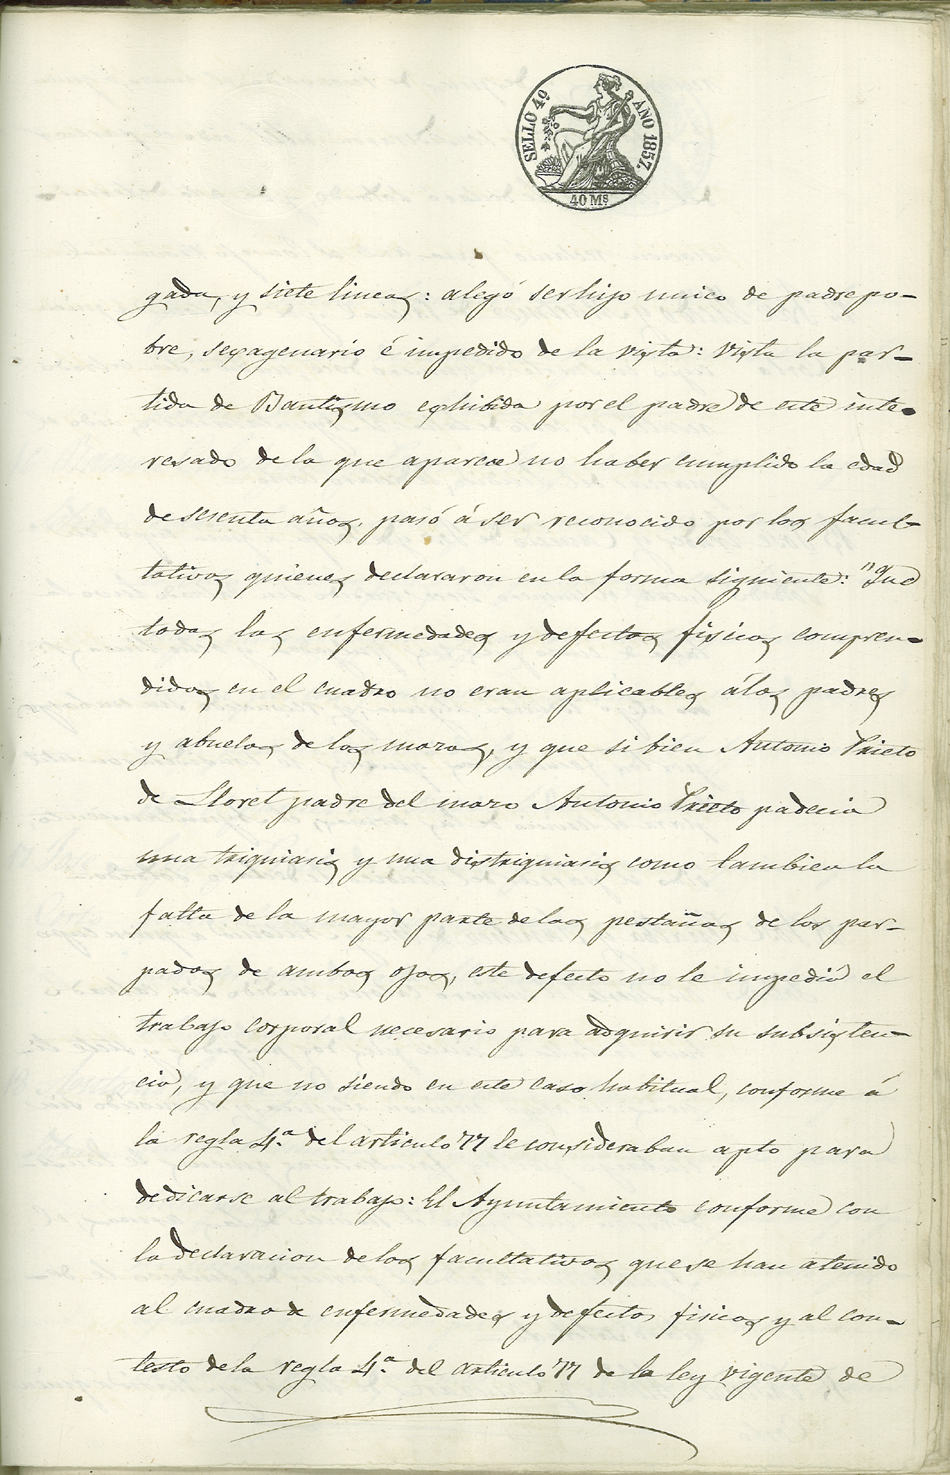 SELLO 4º AÑO 1857.
40 Ms
gada, y siete lineas: alegó ser hijo unico de padre po-
bre, sexagenario é impedido de la vista: Vista la par-
tida de Bautismo exhibida por el padre de este inte-
resado de la que aparece no haber cumplido la edad
de sesenta años, pasó á ser reconocido por los facul-
tativos quienes declararon en la forma siguiente: "Que
todas las enfermedades y defectos fisicos compren-
didos en el cuadro no eran aplicables á los padres
y abuelos de los mozos, y que si bien Antonio Prieto
de Lloret padre del mozo Antonio Prieto padecia
una triquiasis y una distriquiasis como tambien la
falta de la mayor parte de las pestañas de los par-
pados de ambos ojos, este defecto no le impedia el
trabajo corporal necesario para adquirir su subsisten-
cia, y que no siendo en este caso habitual, conforme á
la regla 4.ª del articulo 77 le consideraban apto para
dedicarse al trabajo: El Ayuntamiento conforme con
la declaracion de los facultativos que se han atenido
al cuadro de enfermedades y defectos fisicos y al con-
testo de la regla 4.ª del articulo 77 de la ley vigente de